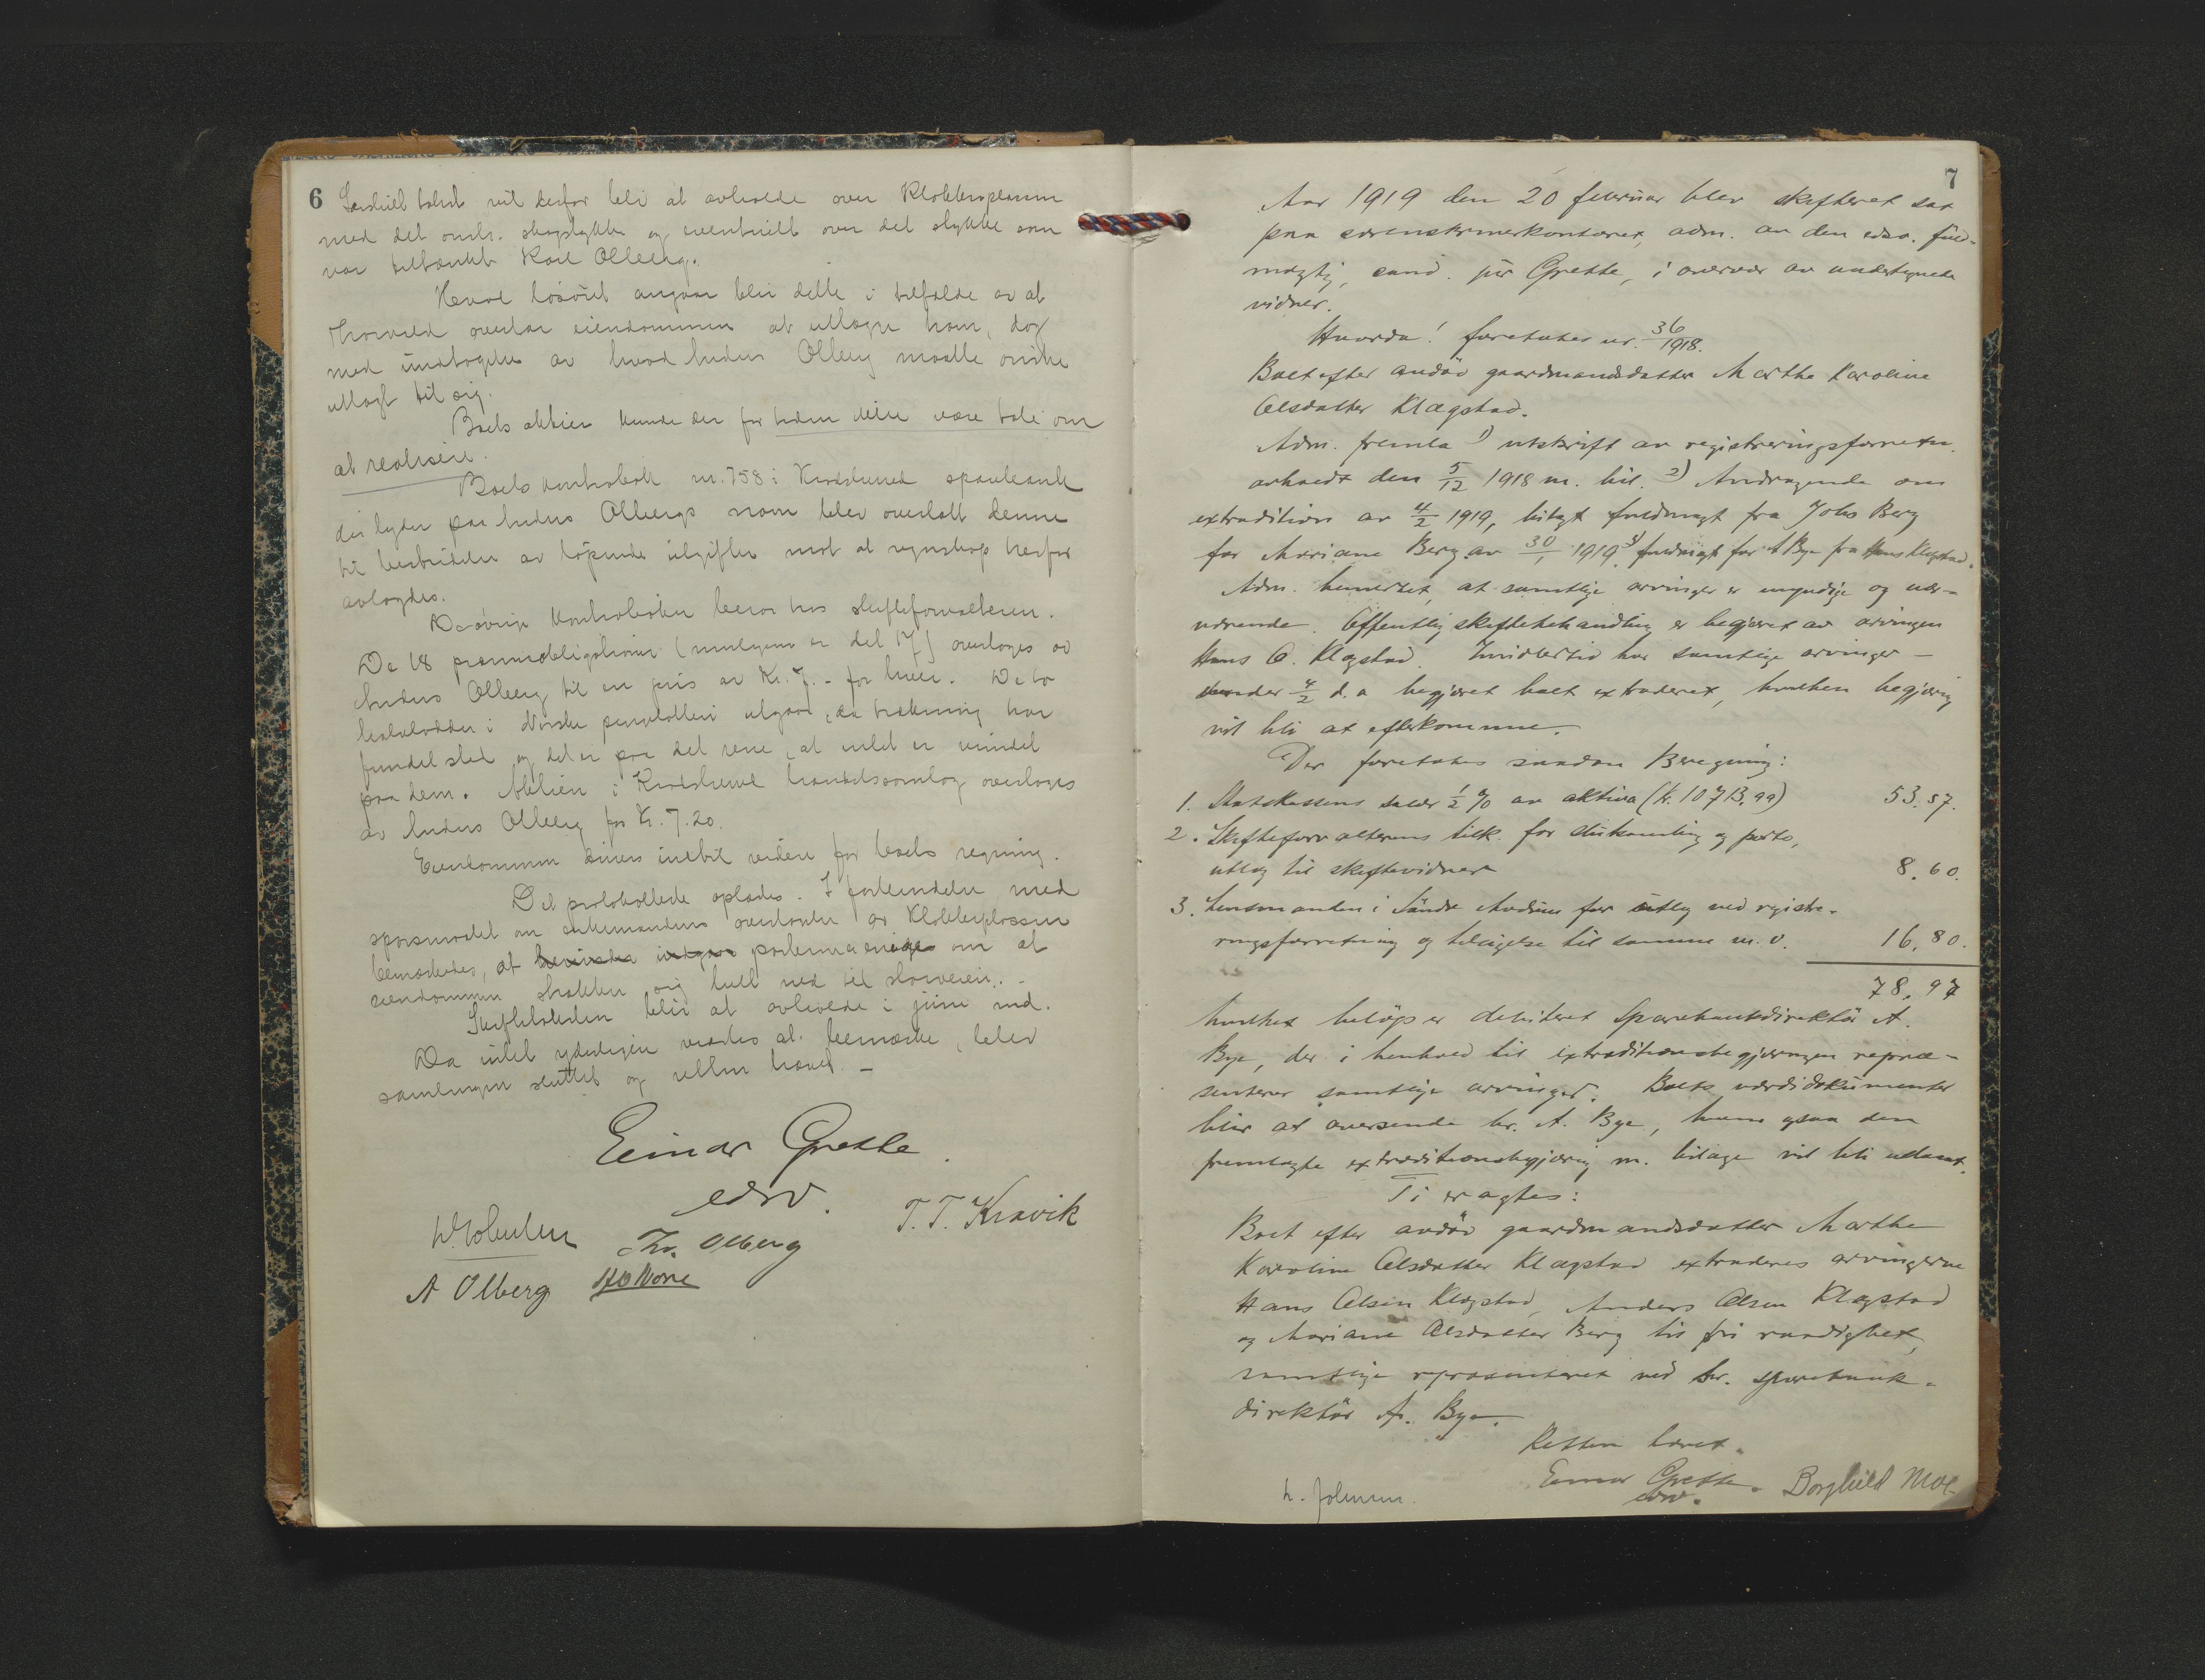 6
Særskilt takst vil derfor bli at avholde over Klokkerplassen
med det omh. skogstykke og eventuelt over det stykke som
var tiltænkt Karl Olberg.
Hvad løsøret angaar blir dette i tilfælde av at
Thorvald overtar eiendommen at utlægge ham, dog
med undtagelse av hvad Anders Olberg maatte ønske
utlagt til sig.
Boets aktier kunde der for tiden ikke være tale om
at realisere.
Boets kontrabok nr. 758 i Krødsherred sparebank
der lyder paa Anders Olbergs navn blev overlatt denne
til bestridelse av løpende utgifter mot at regnskap herfor
avlægges.
De øvrige kontrabøker beror hos skifteforvalteren.
De 18 præmieobligationer (muligens er det 17) overtages av
Anders Olberg til en pris av Kr. 7.- for hver. De to
i Norske utgaar, da trækning har
fundet sted og det er paa det rene, at intet er vundet
paa dem. Aktien i Krødsherred handelssamlag overtages
av Anders Olberg for Kr. 7.20.
Eiendommen drives indtil videre for boets regning.
Det protokollerte oplæstes. I forbindelse med
spørsmaalet om enkemandens overtagelse av Klokkerplassen
bemerkedes, at parterne er enige om at
eiendommen strækker sig helt ned til storveien. -
Skiftetaksten blir at avholde i juni md.
Da intet yderligere vides at bemerke, blev
samlingen sluttet og retten hævet. -
Einar Grette
edsv.
T. T. Kravik
Th. Olberg
A Olberg
7
Aar 1919 den 20 februar blev skifteret sat
paa sorenskriverkontoret, adm. av den edsv. fuld-
mægtig, cand. jur Grette, i overvær av undertegnede
vidner.
Hvorda! foretages nr. 36/1918.
Boet efter avdøe gaardmandsdatter Marthe Karoline
Olsdatter Klægstad.
Adm. fremla 1) utskrift av registreringsforretn.
avholdt den 5/12 1918 m. bil. 2) Andragende om
extradition av 4/2 1919, bilagt fuldmagt fra Johs Berg
for Mariane Berg av 30/1 1919, 3) fuldmagt for A Bye fra Hans Klægstad.
Adm. bemerket, at samtlige arvinger er myndige og nær-
værende. Offentlig skiftebehandling er begjæret av arvingen
Hans O. Klægstad. Imidlertid har samtlige arvinger -
under 4/2 d. a begjæret boet extraderet, hvilken begjæring
vil bli at efterkomme.
Der foretages saadan Beregning:
1. Statskassens salær ½ % av aktiva (kr. 10713,99) 53.57.
2. Skifteforvalterens tilk. for stukamling og porto,
utlæg til skiftevidner 8.60.
3. Lensmanden i Søndre Modum for utlæg ved registre-
ringsforretning og tilsigelse til samme m. v. 16,80.
78,97
hvilket beløp er debiteret Sparebankdirektør A.
Bye, der i henhold til extraditionsbegjæringen repræ-
senterer samtlige arvinger. Boets værdidokumenter
blir at oversende hr. A. Bye, hvem ogsaa den
fremlagte extraditionsbegjæring m. bilage vil bli utlaant.
Ti eragtes:
Boet efter avdøe gaardmandsdatter Marthe
Karoline Olsdatter Klægstad extraderes arvingerne
Hans Olsen Klægstad, Anders Olsen Klægstad
og Mariane Olsdatter Berg til fri raadighet,
samtlige repræsenteret ved hr. sparebank-
direktør A. Bye.
Retten hævet.
Einar Grette. Borghild Moe
edsv.
h. Johnsen.